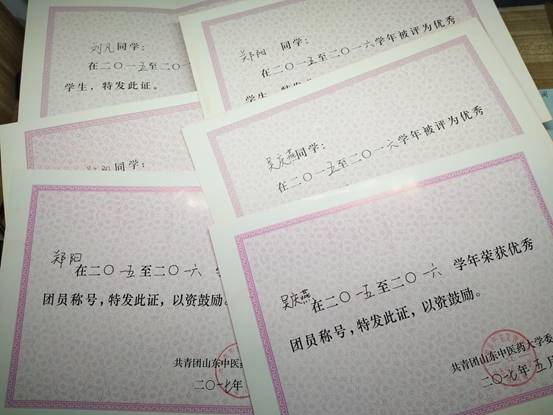 刘凡同学：
在二〇一五至二〇一
学生，特发此证。
郑阳 同学：
在二〇一五至二〇一六学年被评为优秀
学生，特发此证
阳同学：
吴庆燕同学：
在二〇一五至二〇一六学年被评为优秀
郑阳
在二〇一五至二〇一六
团员称号，特发此证，以资鼓励。
共青团山东中医药
二〇一七年
吴庆燕
在二〇一五至二〇一六 学年荣获优秀
团员称号，特发此证，以资鼓励。
共青团山东中医药大学委
二〇一七年五月